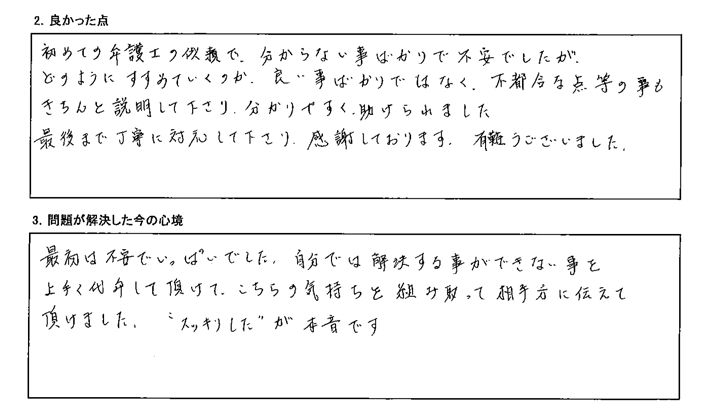 2. 良かった点
初めての弁護士の依頼で、分からない事ばかりで不安でしたが、
どのようにすすめていくのか、良い事ばかりではなく、不都合な点等の事も
きちんと説明して下さり、分かりやすく、助けられました
最後まで丁寧に対応して下さり、感謝しております。有難うございました。
3. 問題が解決した今の心境
最初は不安でいっぱいでした。自分では解決する事ができない事を
上手く代弁して頂けて、こちらの気持ちを組み取って相手方に伝えて
頂けました。“スッキリした”が本音です